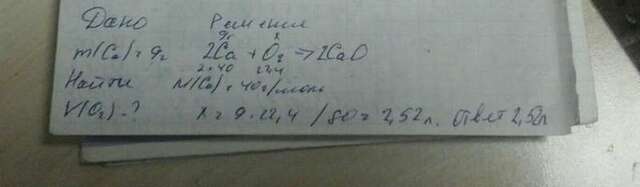 Дано Решение
9г x
m(Ca)=9г 2Ca + O2 → 2CaO
2·40 22,4
Найти M(Ca)=40г/моль
V(O2)-? x = 9·22,4 / 80 = 2,52л. Ответ 2,52л